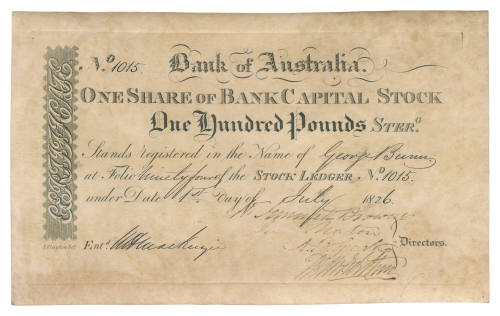 CERTIFICATE
No. 1015. Bank of Australia.
ONE SHARE OF BANK CAPITAL STOCK
One Hundred Pounds STERG.
Stands registered in the Name of George Bunn
at Folio Ninetyfour of the STOCK LEDGER No. 1015.
under Date 1st day of July 1826.
Entd.
Directors.